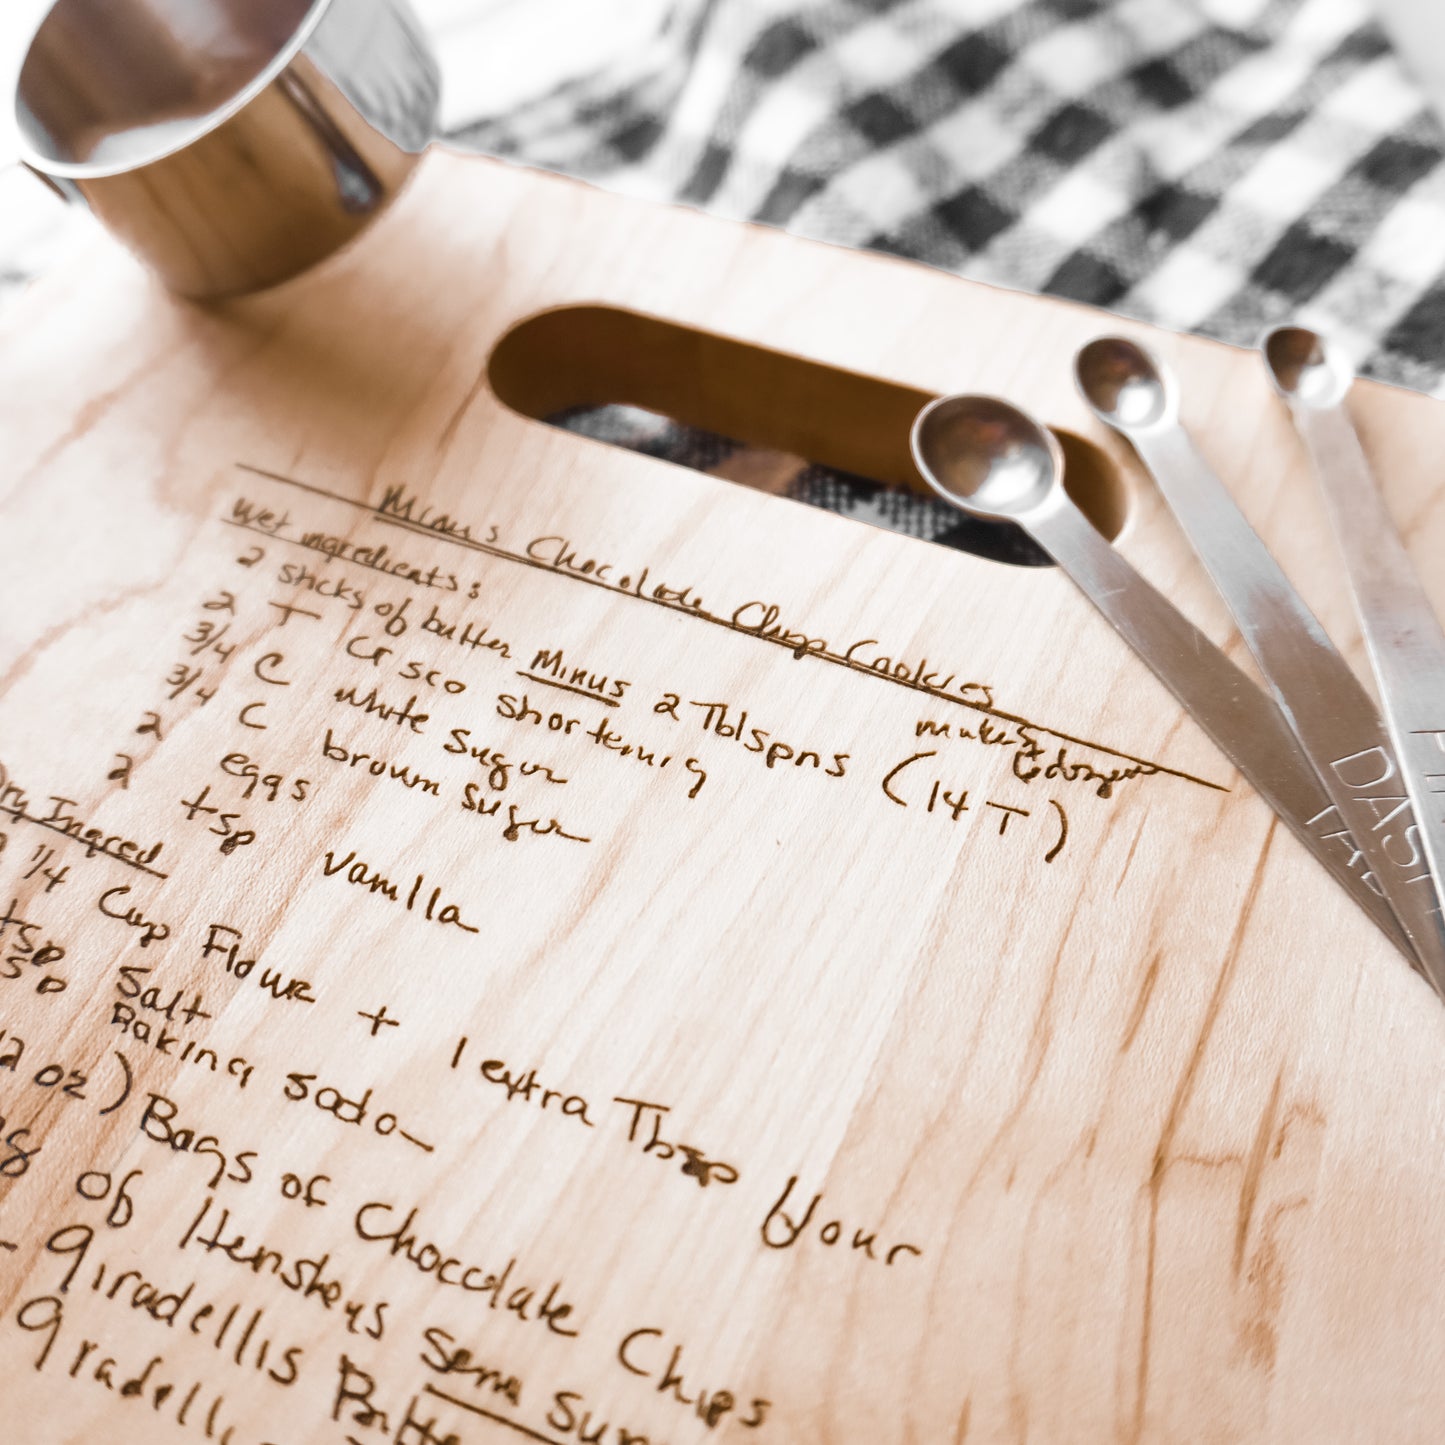 Mimi's Chocolate Chip Cookies
makes 6 dozen
Wet ingredients:
2 sticks of butter Minus 2 Tblspns (14 T)
2 T Crisco shortening
3/4 C white sugar
3/4 C brown sugar
2 eggs
2 tsp vanilla
Dry Ingred
2 1/4 Cup Flour + 1 extra Tbsp flour
tsp Salt
tsp Baking soda
12 oz) Bags of Chocolate Chips
of Hersheys Semi
giradellis
giradelli
DASH